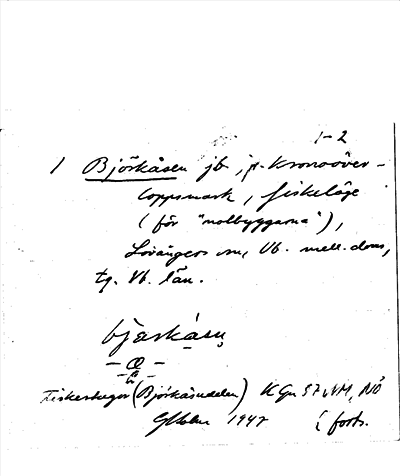 1-2
1 Björkåsen jb, på Kronoöver-
loppsmark, fiskeläge
(för "nolbyggarna"),
Lövångers sn, Vb. mell. doms,
tg. Vb. län.
bjœrkåsn̥
- œ -
Fiskestugor (Björkåsudden) K Gn
GHolm 1947 i forts.